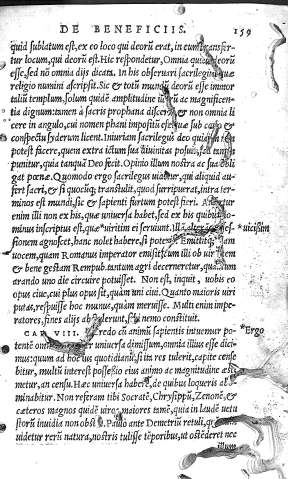 DE BENEFICIIS. 159
quid sublatum est, ex eo loco qui deorū erat, in eum transfer-
tur locum, qui deorū est. Hic respondetur, Omnia quidē deorū
esse, sed nō omnia dijs dicata. In his obseruari sacrilegiū, quæ
religio numini ascripsit. Sic & totū mundū deorū esse immor
taliū templum, solum quidē amplitudine illorū ac magnificen-
tia dignum: tamen à sacris prophana discerni, & non omnia li
cere in angulo, cui nomen phani impositū est, quæ sub cælo &
conspectu syderum licent. Iniuriam sacrilegus deo quidem nō
potest facere, quem extra ictum sua diuinitas posuit, sed tamen
punitur, quia tanquā Deo fecit. Opinio illum nostra ac sua obli
gat pœnæ. Quomodo ergo sacrilegus uidetur, qui aliquid au-
fert sacri, & si quocūq; transtulit, quod surripuerat, intra ter-
minos est mundi, sic & sapienti furtum potest fieri. Aufertur
enim illi non ex his, quæ uniuersa habet, sed ex his quibus do-
minus inscriptus est, quæ *uiritim ei seruiunt. Illā alterā pos- *uicissim
sessionem agnoscet, hanc nolet habere, si poterit. Emittetq; illam
uocem, quam Romanus imperator emisit, cum illi ob uirtutem
& bene gestam Rempub. tantum agri decerneretur, quantum
arando uno die circuire potuisset. Non est, inquit, uobis eo
opus ciue, cui plus opus sit, quàm uni ciui. Quanto maioris uiri
putas, respuisse hoc munus, quàm meruisse. Multi enim impe-
ratores, fines alijs abstulerunt, sibi nemo constituit.
CAP. VIII. *Ergo
credo cū animū sapientis intuemur po-
tentē omnium & per uniuersa dimissum, omnia illius esse dici-
mus: quum ad hoc ius quotidianū, si ita res tulerit, capite cense
bitur, multū interest possessio eius animo ac magnitudine æsti
metur, an censu. Hæc uniuersa habere, de quibus loqueris ab-
minabitur. Non referam tibi Socratē, Chrysippū, Zenonē, &
cæteros magnos quidē uiros, maiores tamē, quia in laudē uetu
storū inuidia non obstat. Paulo ante Demetriū retuli, quem mihi
uidetur rerū natura, nostris tulisse tēporibus, ut ostēderet nec
illum